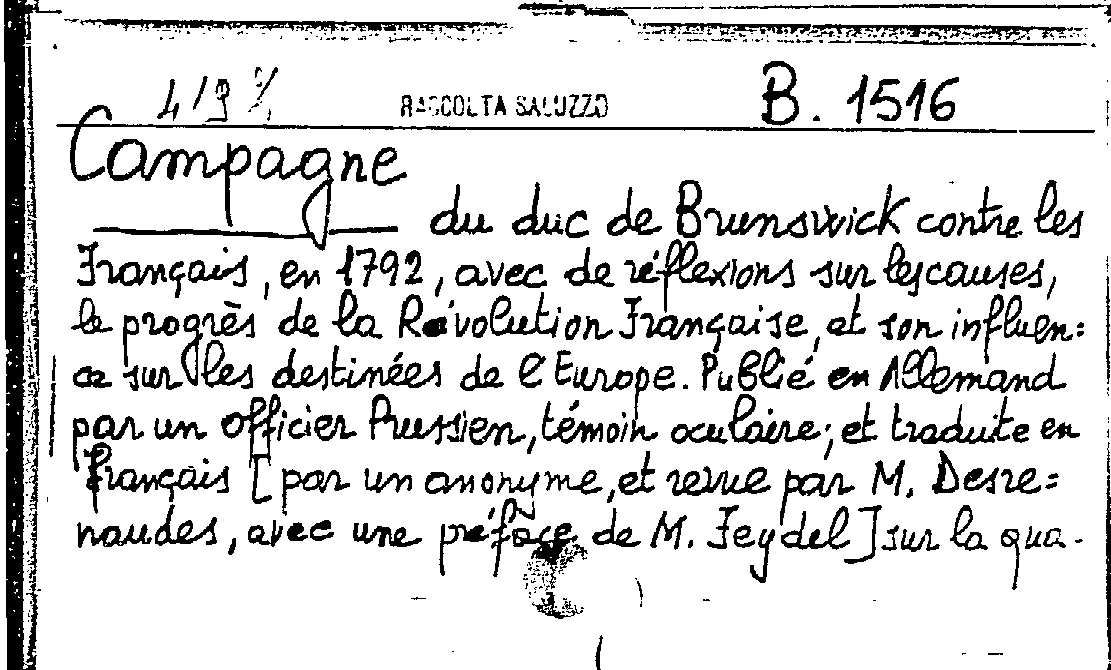 RACCOLTA SALUZZO B. 1516
Campagne
du duc de Brunswick contre les
Français, en 1792, avec de réflexions sur les causes,
le progrès de la Révolution Française, et son influen=
ce sur les destinées de l'Europe. Publié en Allemand
par un officier Prussien, témoin oculaire; et traduite en
français [par un anonyme, et revue par M. Desre=
naudes, avec une préface de M. Feydel] sur la qua-